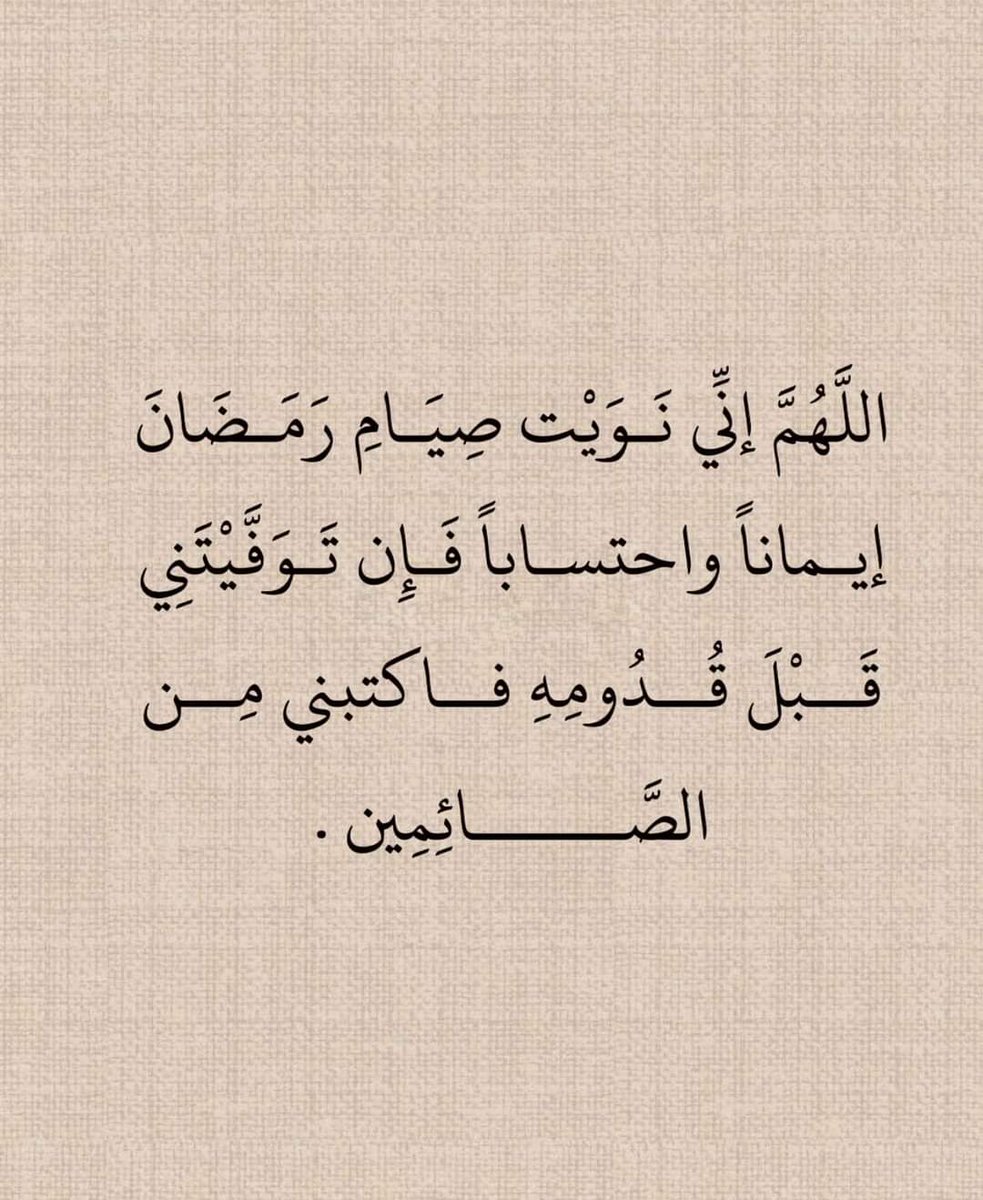 اللَّهُمَّ إنِّي نَـوَيْت صِيَـامِ رَمَـضَانَ
إيـماناً واحتسـاباً فَـإِن تَـوَفَّيْتَنِي
قَـبْلَ قُـدُومِهِ فـاكتبني مِـن
الصَّـائِمِين .